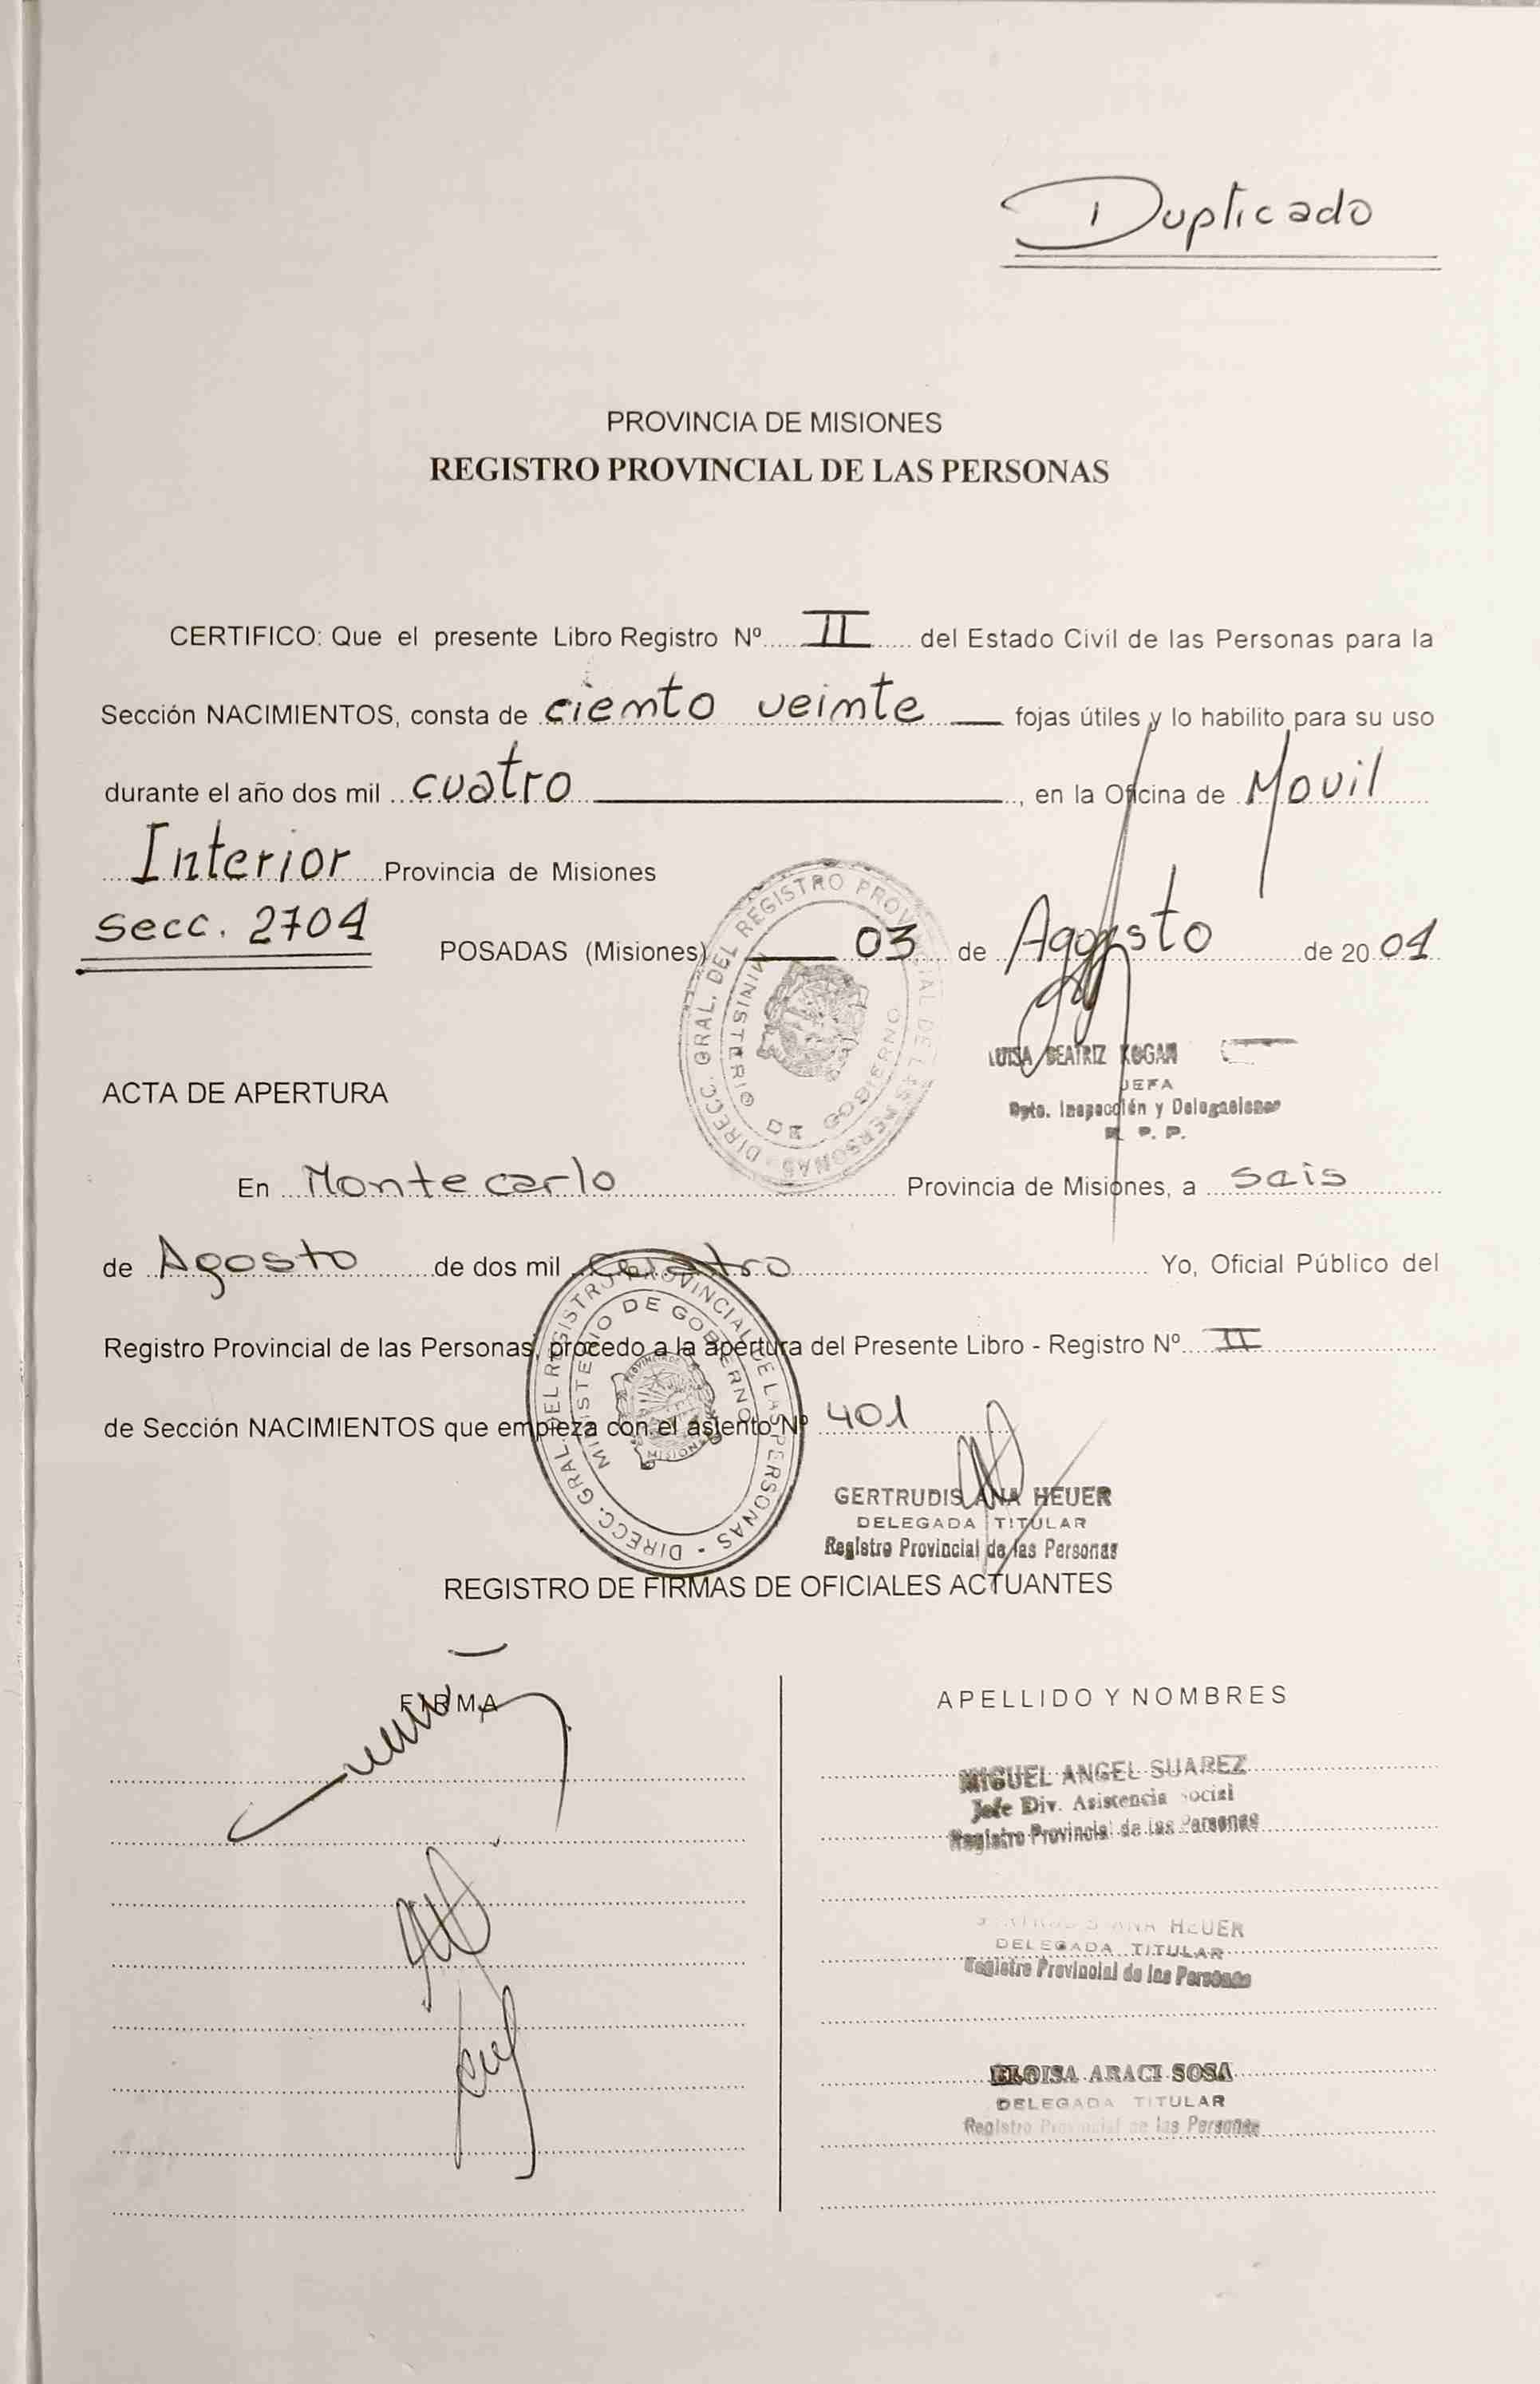 Duplicado
PROVINCIA DE MISIONES
REGISTRO PROVINCIAL DE LAS PERSONAS
CERTIFICO: Que el presente Libro Registro Nº II del Estado Civil de las Personas para la
Sección NACIMIENTOS, consta de ciento veinte fojas útiles y lo habilito para su uso
durante el año dos mil cuatro, en la Oficina de Movil
Interior Provincia de Misiones
Secc. 2704
POSADAS (Misiones) 03 de Agosto de 2004
DIRECC. GRAL. DEL REGISTRO PROVINCIAL DE LAS PERSONAS
MINISTERIO DE GOBIERNO
LUISA BEATRIZ KOGAN
JEFA
Dpto. Inspección y Delegaciones
R. P. P.
ACTA DE APERTURA
En Montecarlo Provincia de Misiones, a seis
de Agosto de dos mil cuatro Yo, Oficial Público del
Registro Provincial de las Personas, procedo a la apertura del Presente Libro - Registro Nº II
de Sección NACIMIENTOS que empieza con el asiento Nº 401
DIRECC. GRAL. DEL REGISTRO PROVINCIAL DE LAS PERSONAS
MINISTERIO DE GOBIERNO
GERTRUDIS ANA HEUER
DELEGADA TITULAR
Registro Provincial de las Personas
REGISTRO DE FIRMAS DE OFICIALES ACTUANTES
FIRMA
APELLIDO Y NOMBRES
MIGUEL ANGEL SUAREZ
Jefe Div. Asistencia Social
Registro Provincial de las Personas
GERTRUDIS ANA HEUER
DELEGADA TITULAR
Registro Provincial de las Personas
ELOISA ARACI SOSA
DELEGADA TITULAR
Registro Provincial de las Personas